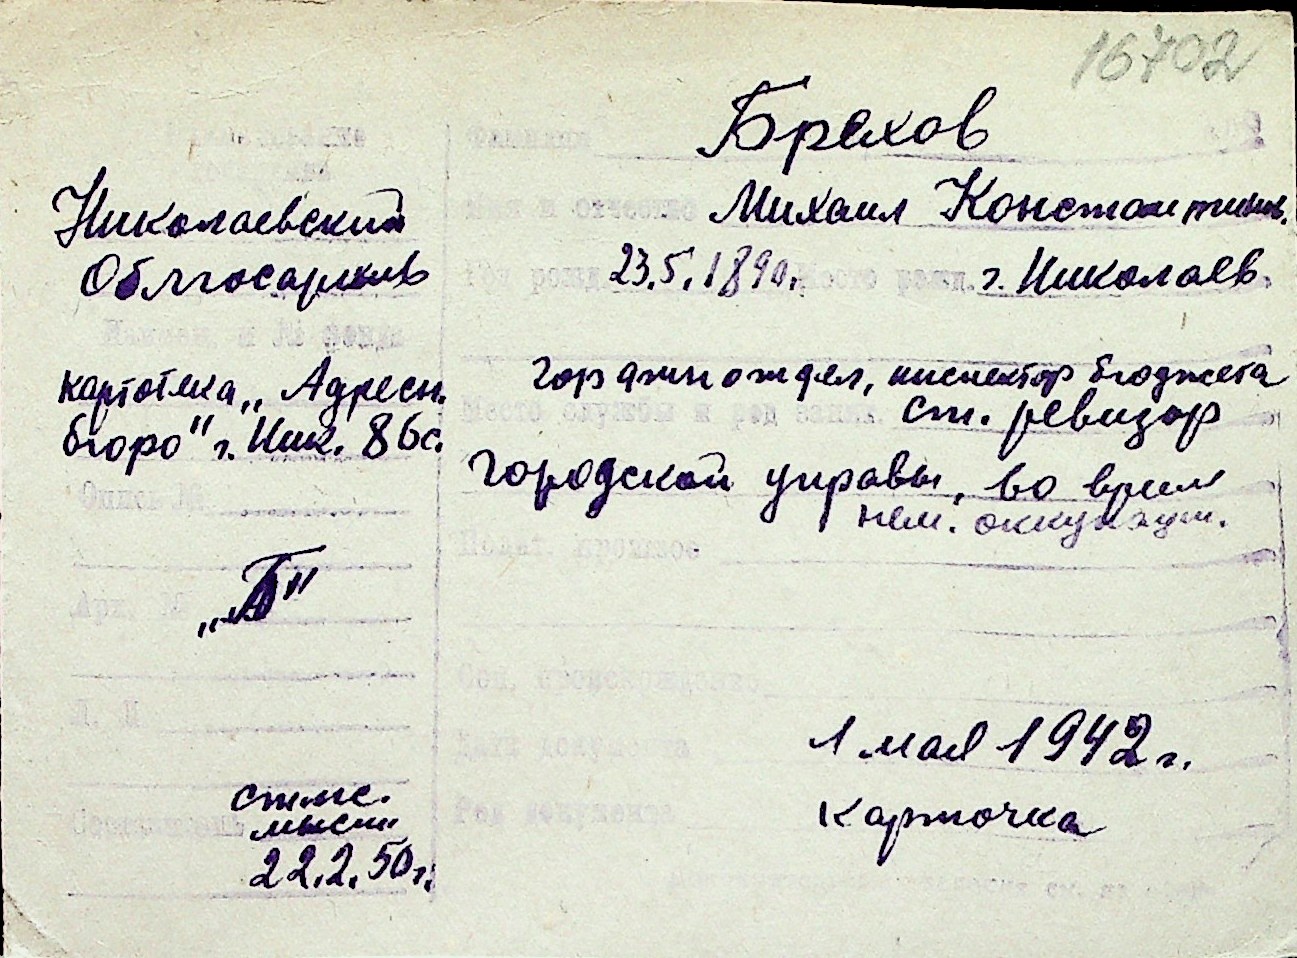 16702
Брехов
Фамилия
Николаевский
Облгосархив
Имя и отчество Михаил Константинов.
Год рожд. 23.5.1890г. Место рожд. г. Николаев.
Наимен. и № фонда
картотека „Адресн.
бюро" г. Ник. 86с.
инспектор бюджета
Место службы и род занят. ст. ревизор
городской управы, во время
нем. оккупации.
Опись №
Полит. прошлое
Арх. №
„Б"
Соц. происхождение
Л. Л.
Дата документа 1 мая 1942 г.
Род документа карточка
Составитель
22.2.50г.